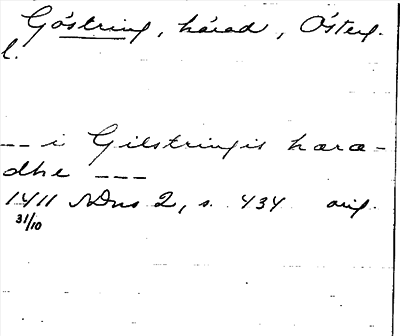 Göstring, härad, Österg.
l.
--- i Gilstringis hæræ-
dhe ---
1411 SDns 2, s. 434 orig.
31/10